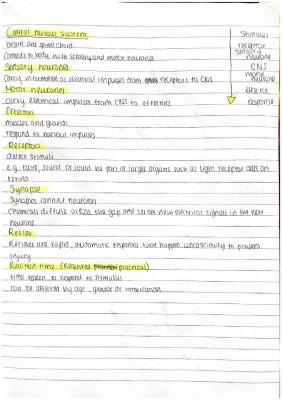 Central nervous system
brain and spinal chord
connects to body with sensory and motor neurones
Sensory neurones
Carry information as electrical impulses from receptors to CNS
Motor neurones
carry electrical impulses from CNS to effectors
Effectors
muscles and glands
respond to nervous impulses
Receptors
detect stimuli
e.g. taste, sound or could be part of larger organs such as light receptor cells on
retina
Synapse
Synapses connect neurones
Chemicals diffuse across the gap and set off new electrical signals in the next
neurone
Reflex
Reflexes are rapid, automatic responses that happen unconsciously to prevent
injury
Reaction time (Required practical)
time taken to respond to stimulus
can be affected by age, gender or intoxication
Stimulus
receptor
sensory
neurone
CNS
motor
neurone
effector
response